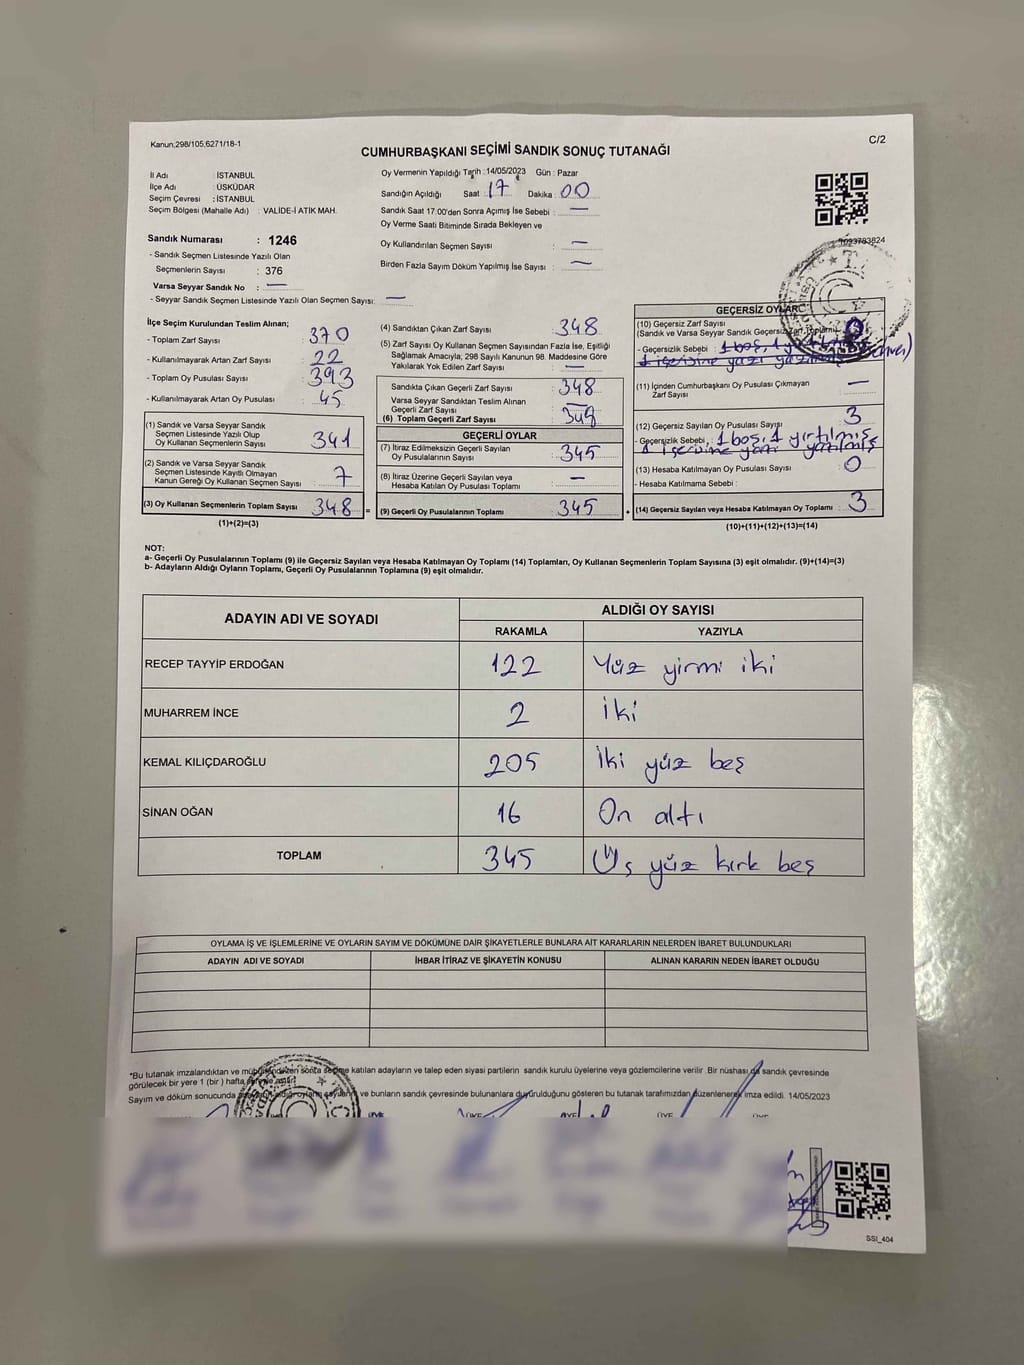 Kanun,298/105,6271/18-1
C/2
CUMHURBAŞKANI SEÇİMİ SANDIK SONUÇ TUTANAĞI
İl Adı : İSTANBUL
İlçe Adı : ÜSKÜDAR
Seçim Çevresi : İSTANBUL
Seçim Bölgesi (Mahalle Adı) : VALİDE-İ ATİK MAH.
Sandık Numarası : 1246
- Sandık Seçmen Listesinde Yazılı Olan
Seçmenlerin Sayısı : 376
Varsa Seyyar Sandık No : —
- Seyyar Sandık Seçmen Listesinde Yazılı Olan Seçmen Sayısı: —
Oy Vermenin Yapıldığı Tarih :14/05/2023 Gün : Pazar
Sandığın Açıldığı Saat : 17 Dakika : 00
Sandık Saat 17.00'den Sonra Açımış İse Sebebi : —
Oy Verme Saati Bitiminde Sırada Bekleyen ve
Oy Kullandırılan Seçmen Sayısı : —
Birden Fazla Sayım Döküm Yapılmış İse Sayısı : —
İlçe Seçim Kurulundan Teslim Alınan;
- Toplam Zarf Sayısı : 370
- Kullanılmayarak Artan Zarf Sayısı : 22
- Toplam Oy Pusulası Sayısı : 393
- Kullanılmayarak Artan Oy Pusulası : 45
(1) Sandık ve Varsa Seyyar Sandık
Seçmen Listesinde Yazılı Olup
Oy Kullanan Seçmenlerin Sayısı : 341
(2) Sandık ve Varsa Seyyar Sandık
Seçmen Listesinde Kayıtlı Olmayan
Kanun Gereği Oy Kullanan Seçmen Sayısı : 7
(3) Oy Kullanan Seçmenlerin Toplam Sayısı : 348 =
(1)+(2)=(3)
(4) Sandıktan Çıkan Zarf Sayısı : 348
(5) Zarf Sayısı Oy Kullanan Seçmen Sayısından Fazla İse, Eşitliği
Sağlamak Amacıyla, 298 Sayılı Kanunun 98. Maddesine Göre
Yakılarak Yok Edilen Zarf Sayısı : —
Sandıkta Çıkan Geçerli Zarf Sayısı : 348
Varsa Seyyar Sandıktan Teslim Alınan
Geçerli Zarf Sayısı : —
(6) Toplam Geçerli Zarf Sayısı : 348
GEÇERLİ OYLAR
(7) İtiraz Edilmeksizin Geçerli Sayılan
Oy Pusulalarının Sayısı : 345
(8) İtiraz Üzerine Geçerli Sayılan veya
Hesaba Katılan Oy Pusulası Toplamı : —
(9) Geçerli Oy Pusulalarının Toplamı : 345 +
GEÇERSİZ OYLAR
(10) Geçersiz Zarf Sayısı
(Sandık ve Varsa Seyyar Sandık Geçersiz Zarf Toplamı) : 0
- Geçersizlik Sebebi : 1 boş, 1
1 içerisine yazı yazılmış
(11) İçinden Cumhurbaşkanı Oy Pusulası Çıkmayan
Zarf Sayısı : —
(12) Geçersiz Sayılan Oy Pusulası Sayısı : 3
- Geçersizlik Sebebi : 1 boş, 1 yırtılmış
1 içerisine yazı yazılmış
(13) Hesaba Katılmayan Oy Pusulası Sayısı : 0
- Hesaba Katılmama Sebebi :
(14) Geçersiz Sayılan veya Hesaba Katılmayan Oy Toplamı : 3
(10)+(11)+(12)+(13)=(14)
NOT:
a- Geçerli Oy Pusulalarının Toplamı (9) ile Geçersiz Sayılan veya Hesaba Katılmayan Oy Toplamı (14) Toplamları, Oy Kullanan Seçmenlerin Toplam Sayısına (3) eşit olmalıdır. (9)+(14)=(3)
b- Adayların Aldığı Oyların Toplamı, Geçerli Oy Pusulalarının Toplamına (9) eşit olmalıdır.
ADAYIN ADI VE SOYADI
ALDIĞI OY SAYISI
RAKAMLA YAZIYLA
RECEP TAYYİP ERDOĞAN 122 Yüz yirmi iki
MUHARREM İNCE 2 İki
KEMAL KILIÇDAROĞLU 205 İki yüz beş
SİNAN OĞAN 16 On altı
TOPLAM 345 Üç yüz kırk beş
OYLAMA İŞ VE İŞLEMLERİNE VE OYLARIN SAYIM VE DÖKÜMÜNE DAİR ŞİKAYETLERLE BUNLARA AİT KARARLARIN NELERDEN İBARET BULUNDUKLARI
ADAYIN ADI VE SOYADI İHBAR İTİRAZ VE ŞİKAYETİN KONUSU ALINAN KARARIN NEDEN İBARET OLDUĞU
*Bu tutanak imzalandıktan ve mühürlendikten sonra seçime katılan adayların ve talep eden siyasi partilerin sandık kurulu üyelerine veya gözlemcilerine verilir. Bir nüshası da sandık çevresinde
görülecek bir yere 1 (bir) hafta
Sayım ve döküm sonucunda ve bunların sandık çevresinde bulunanlara duyurulduğunu gösteren bu tutanak tarafımızdan düzenlenerek imza edildi. 14/05/2023
SSİ_404